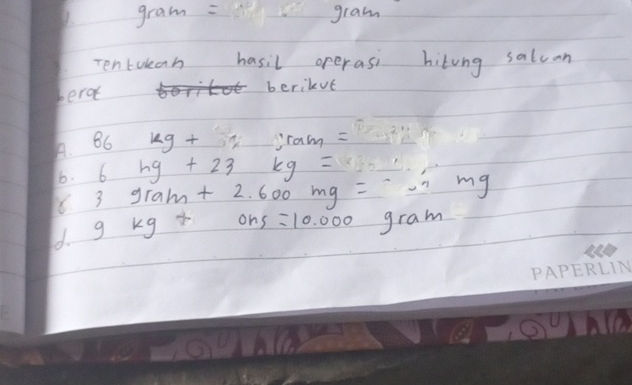 gram = gram
Tentukan hasil operasi hitung satuan
berat berikut
A. 86 kg + gram =
b. 6 hg + 23 kg =
3 gram + 2.600 mg = mg
d. 9 kg + ons = 10.000 gram
PAPERLIN